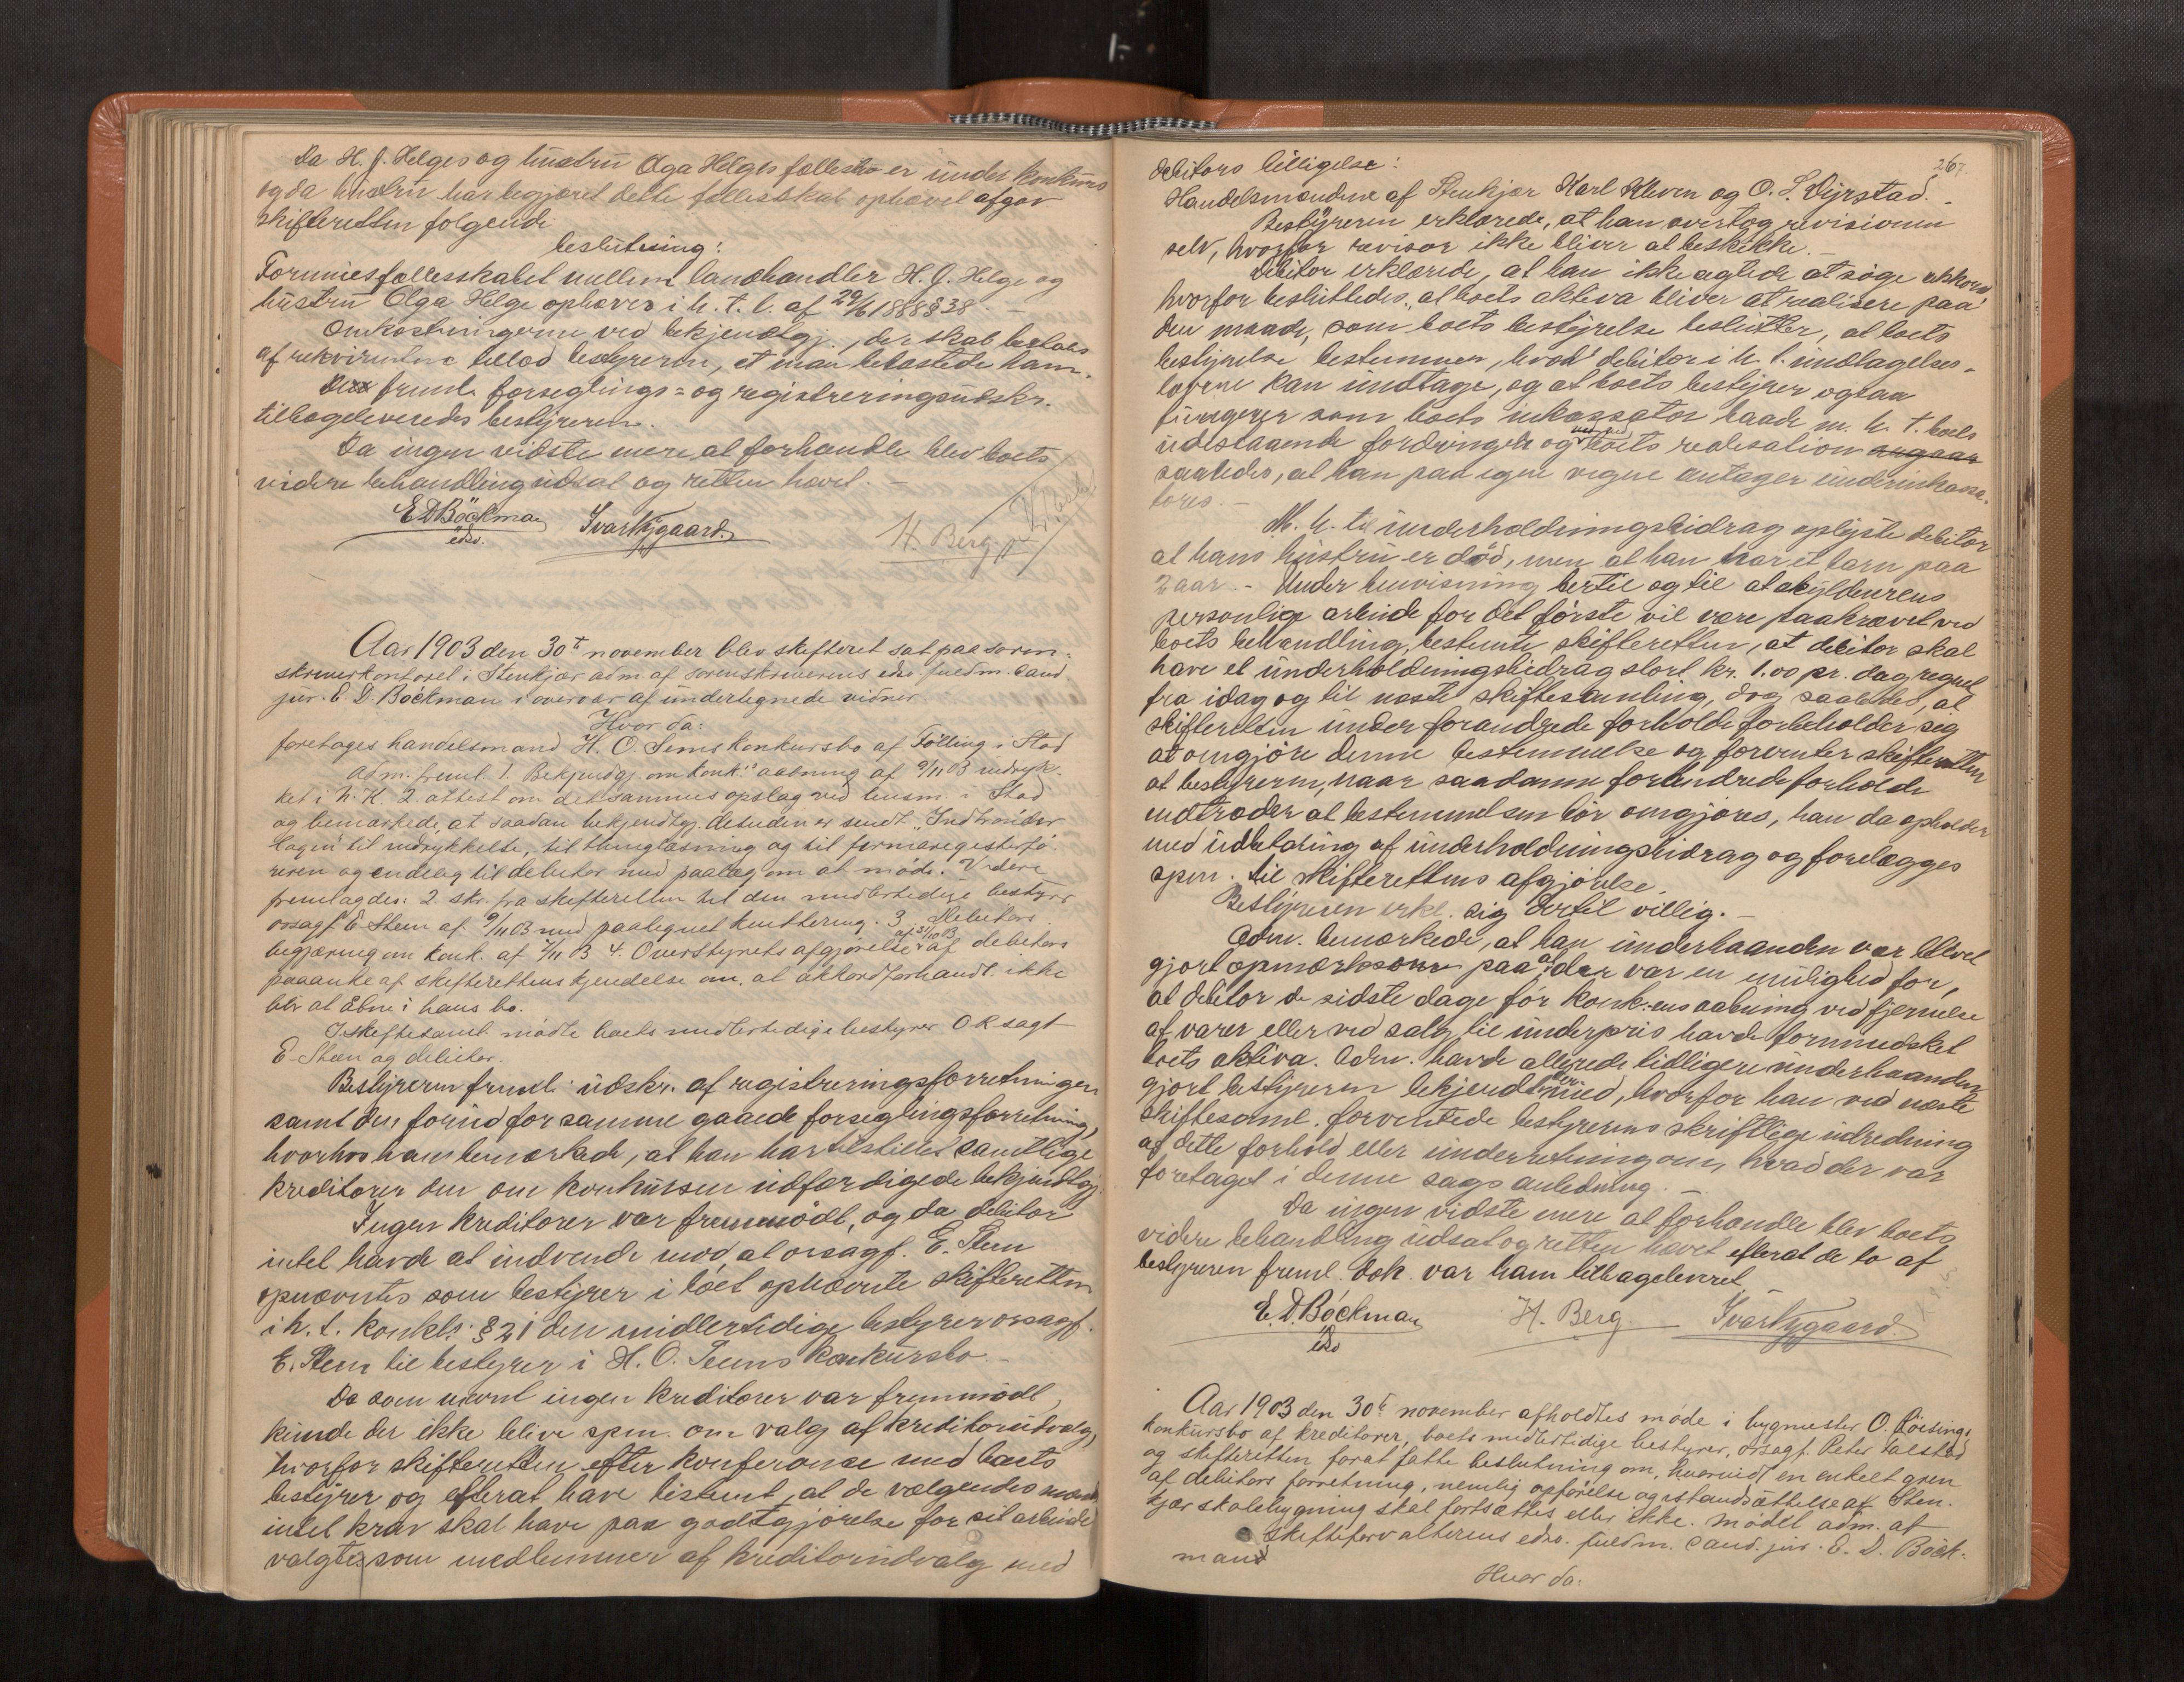 Da H. J. Helges og hustru Olga Helges fællesbo er under konkurs
og da hustru har begjæret dette fællesskab ophævet afgav
skifteretten følgende
beslutning:
Formuesfællesskabet mellem landhandler H. J. Helge og
hustru Olga Helge ophæves i h. t. l. af 29/6 1888 § 38. –
Omkostningerne ved bekjendtgj., der skal betales
af rekvirentene tillod bestyreren, at man belastede ham.
De freml. forseglings= og registreringsudskr.
tilbageleveredes bestyreren.
Da ingen vidste mere at forhandle blev boets
videre behandling udsat og retten hævet. –
E D Böckman Ivar Nygaard. H. Berg
edsv.
Aar 1903 den 30t november blev skifteret sat paa soren=
skriverkontoret i Stenkjær adm. af sorenskriverens edsv. fuldm. cand.
jur. E. D. Böckman i overvær af undertegnede vidner
Hvor da:
foretoges handelsmand H. O. Tems konkursbo af Følling i Stod
Adm. freml. 1. Bekjendtgj. om konk.s aabning af 9/11 03 indryk-
ket i N. K. 2. attest om det sammes opslag ved lensm. i Stod
og bemærkede, at saadan bekjendtgj. desuden er sendt "Indtrønder
lagen" til indrykkelse, til thinglæsning og til firmaregisterfø-
reren og endelig til debitor med paalæg om at møde. Videre
fremlagdes: 2. skr. fra skifteretten til den midlertidige bestyrer
orsagf. E Steen af 9/11 03 med paategnet kvittering. 3. Debitors
begjæring om konk. af 7/11 03 4. Overstyrets afgjørelse af 31/10 03 af debitors
paaanke af skifterettens kjendelse om, at akkordforhandl. ikke
blir at åbne i hans bo.
I skiftesaml. mødte boets midlertidige bestyrer O R sagf
E Steen og debitor.
Bestyreren freml. udskr. af registreringsforretningen
samt den forud for samme gaaede forseglingsforretning,
hvorhos han bemærkede, at han har tilstillet samtlige
kreditorer den om konkursen udfærdigede bekjendtgj.
Ingen kreditorer var fremmødt, og da debitor
intet havde at indvende mod, at orsagf. E. Steen
opnævntes som bestyrer i boet opnævnte skifteretten
i h. t. konkl. § 21 den midlertidige bestyrer orsagf.
E. Steen til bestyrer i H. O. Teems konkursbo. –
Da som nævnt ingen kreditorer var fremmødt,
kunde der ikke blive spm. om valg af kreditorudvalg,
hvorfor skifteretten efter konferanse med boets
bestyrer og efterat have bestemt, at de valgendes mænd
intet krav skal have paa godtgjørelse for sit arbeide
valgte som medlemmer af kreditorudvalg med
267.
debitors billigelse:
Handelsmændene af Stenkjær Karl Kleven og O. L. Dyrstad. –
Bestyreren erklærede, at han overtog revisionen
selv, hvorfor revisor ikke bliver at beskikke. –
Debitor erklærede, at han ikke agtede at søge akkord
hvorfor besluttedes, at boets aktiva bliver at realisere paa
den maade, som boets bestyrelse beslutter, at boets
bestyrelse bestemmer, hvad debitor i h. t. undtagelses-
lovene kan undtage, og at boets bestyrer ogsaa
fungerer som boets inkassator baade m. h. t. boets
udestaaende fordringer og ved boets realisation
saaledes, at han paa egne vegne antager underinkassa-
tores. –
M. h. til underholdningsbidrag oplyste debitor
at hans hustru er död, men at han har et barn paa
2 aar. – Under henvisning hertil og til at skyldnerens
personlige arbeide for det første vil være paakrævet ved
boets behandling, bestemte skifteretten, at debitor skal
have et underholdningsbidrag stort kr. 1.00 pr. dag regnet
fra idag og til næste skiftesamling, dog saaledes, at
skifteretten under forandrede forholde forbeholder sig
at omgjøre denne bestemmelse og forventer skifteretten
at bestyreren, naar saadanne forandrede forholde
indtræder at bestemmelsen bør omgjøres, han da opholder
med udbetaling af underholdningsbidrag og forelægges
spm. til skifterettens afgjørelse.
Bestyreren erkl. sig dertil villig. –
Adm. bemærkede, at han underhaanden var blevet
gjort opmærksom paa at der var en mulighed for,
at debitor de sidste dage før konk:ens aabning ved fjernelse
af varer eller ved salg til underpris havde formindsket
boets aktiva. Adm. havde allerede tidligere underhaanden
gjort bestyreren bekjendt hermed, hvorfor han ved næste
skiftesaml. forventede bestyrerens skriftlige udredning
af dette forhold eller underretning om, hvad der var
foretaget i denne sags anledning. –
Da ingen vidste mere at forhandle blev boets
videre behandling udsat og retten hævet efterat de to af
bestyreren freml. dok. var ham tilbageleveret
E. D. Böckman H. Berg. Ivar Nygaard.
edsv
Aar 1903 den 30t november afholdtes møde i bygmester O. Røisings
konkursbo af kreditorer, boets midlertidige bestyrer, orsagf. Peter
og skifteretten forat fatte beslutning om, hvorvidt en enkelt gren
af debitors forretning, nemlig opførelse og istandsættelse af Sten-
kjær skolebygning skal fortsættes eller ikke. Mødet adm. af
skifteforvalterens edsv. fuldm. cand. jur. E. D. Böck=
mand
Hvor da: